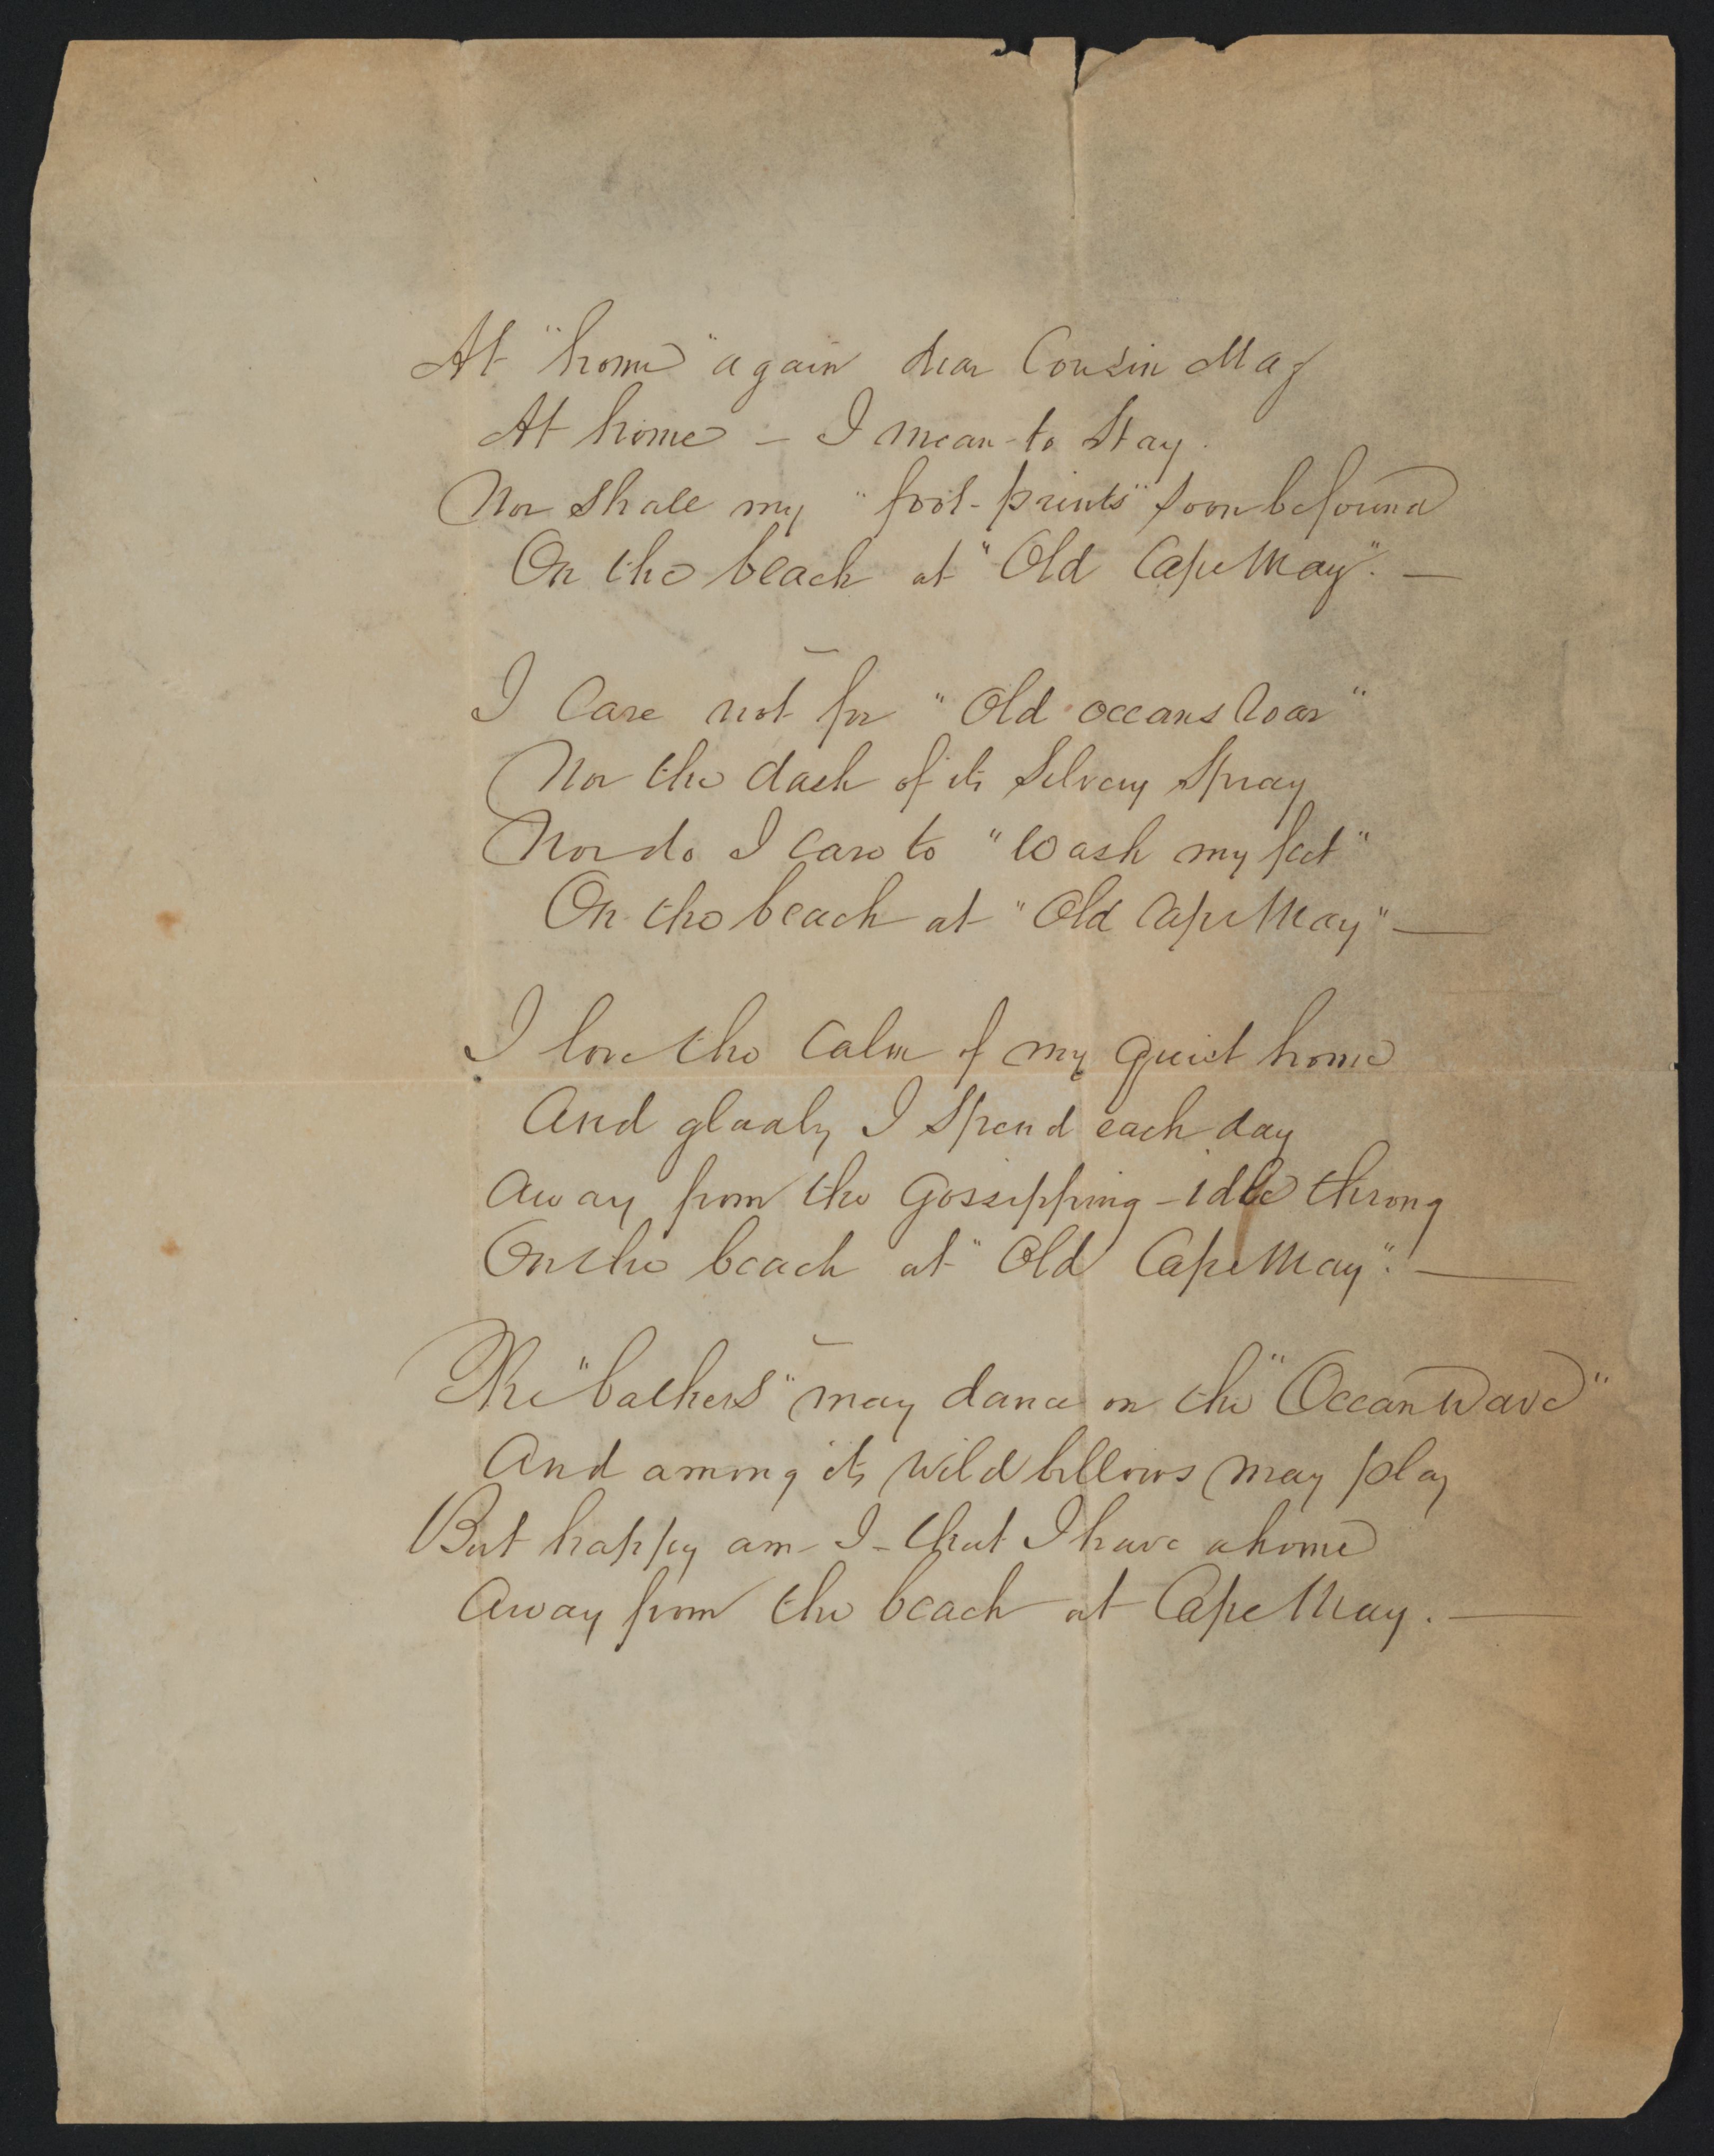 At "home" again dear Cousin Mag
At home – I mean to Stay.
Nor Shall my "foot-prints" soon be found
On the beach at "Old Cape May". —
I Care not for "Old oceans Roar"
Nor the dash of its Silvery Spray
Nor do I care to "Wash my feet"
On the beach at "Old Cape May" —
I love the Calm of my quiet home
And gladly I Spend each day
Away from the Gossipping – idle throng
On the beach at "Old Cape May". —
The "bathers" may dance on the "Ocean Wave"
And among its Wild billows may play
But happy am – I – that I have a home
Away from the beach at Cape May. —